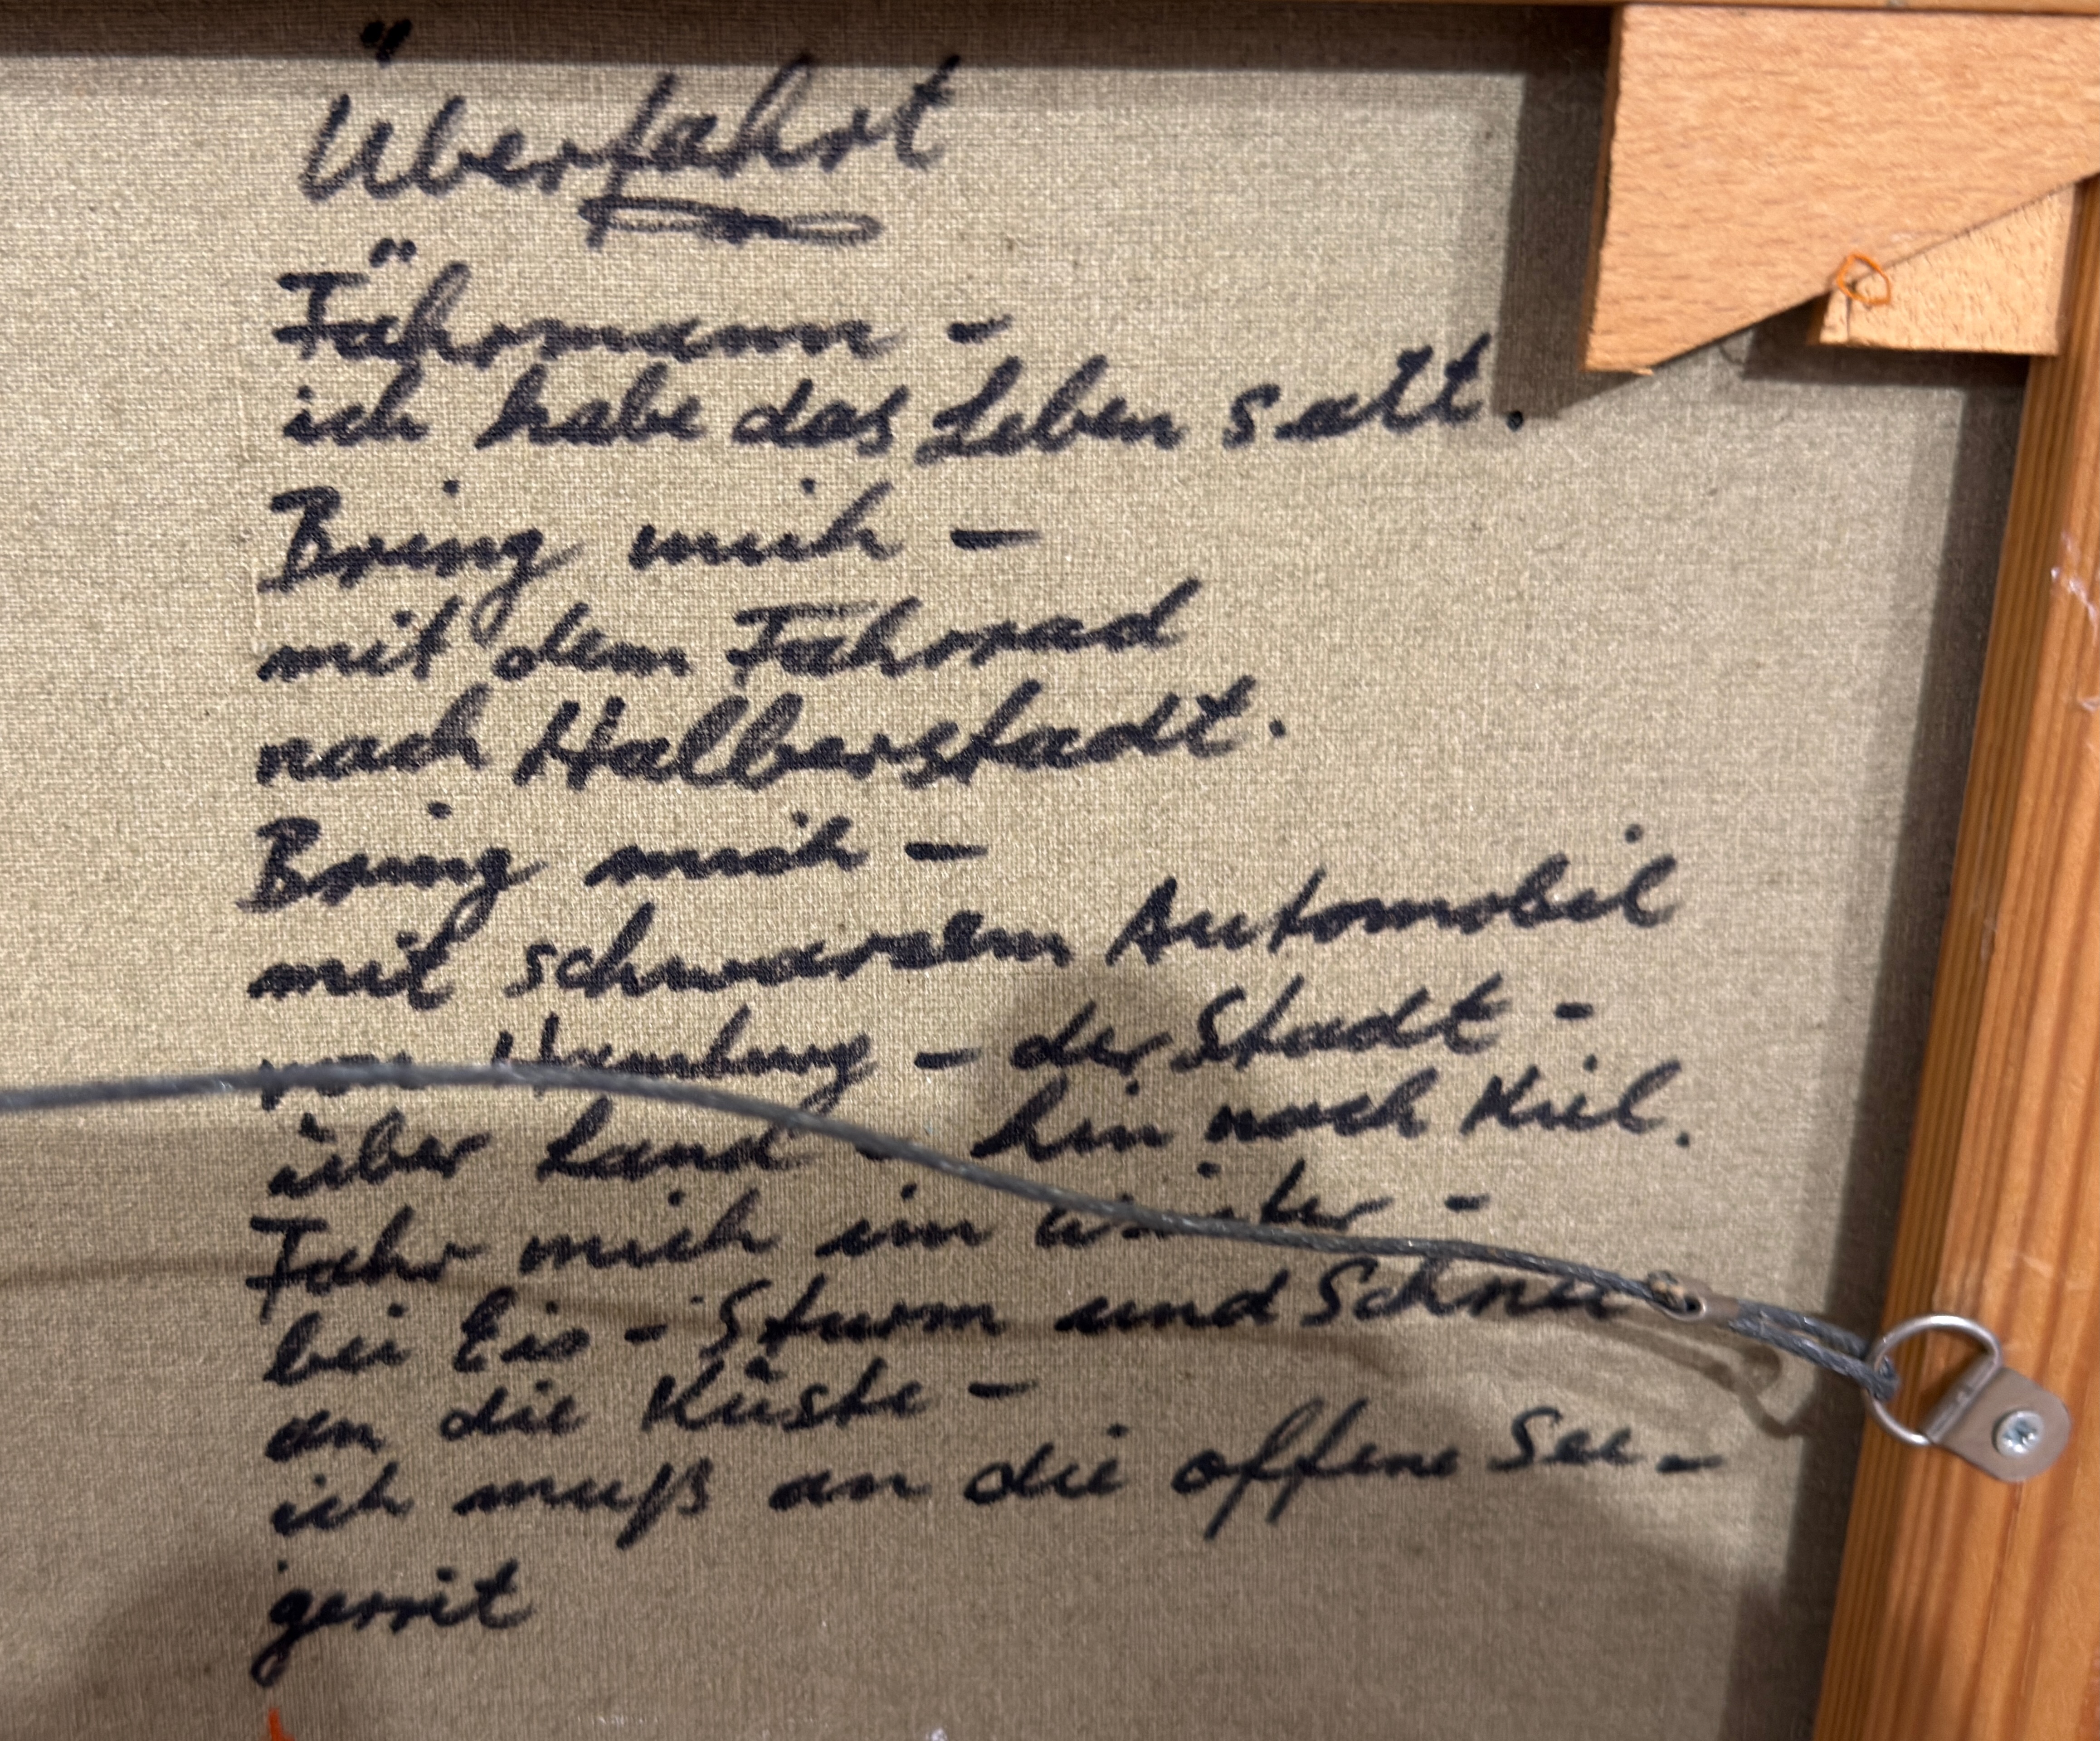 Überfahrt
Fährmann -
ich habe das Leben satt.
Bring mich -
mit dem Fahrrad
nach Halberstadt.
Bring mich -
mit schwarzem Automobil
von Hamburg - der Stadt -
über Land - hin nach Kiel.
Fahr mich im Winter -
bei Eis - Sturm und Schnee
an die Küste -
ich muß an die offene See -
gerrit